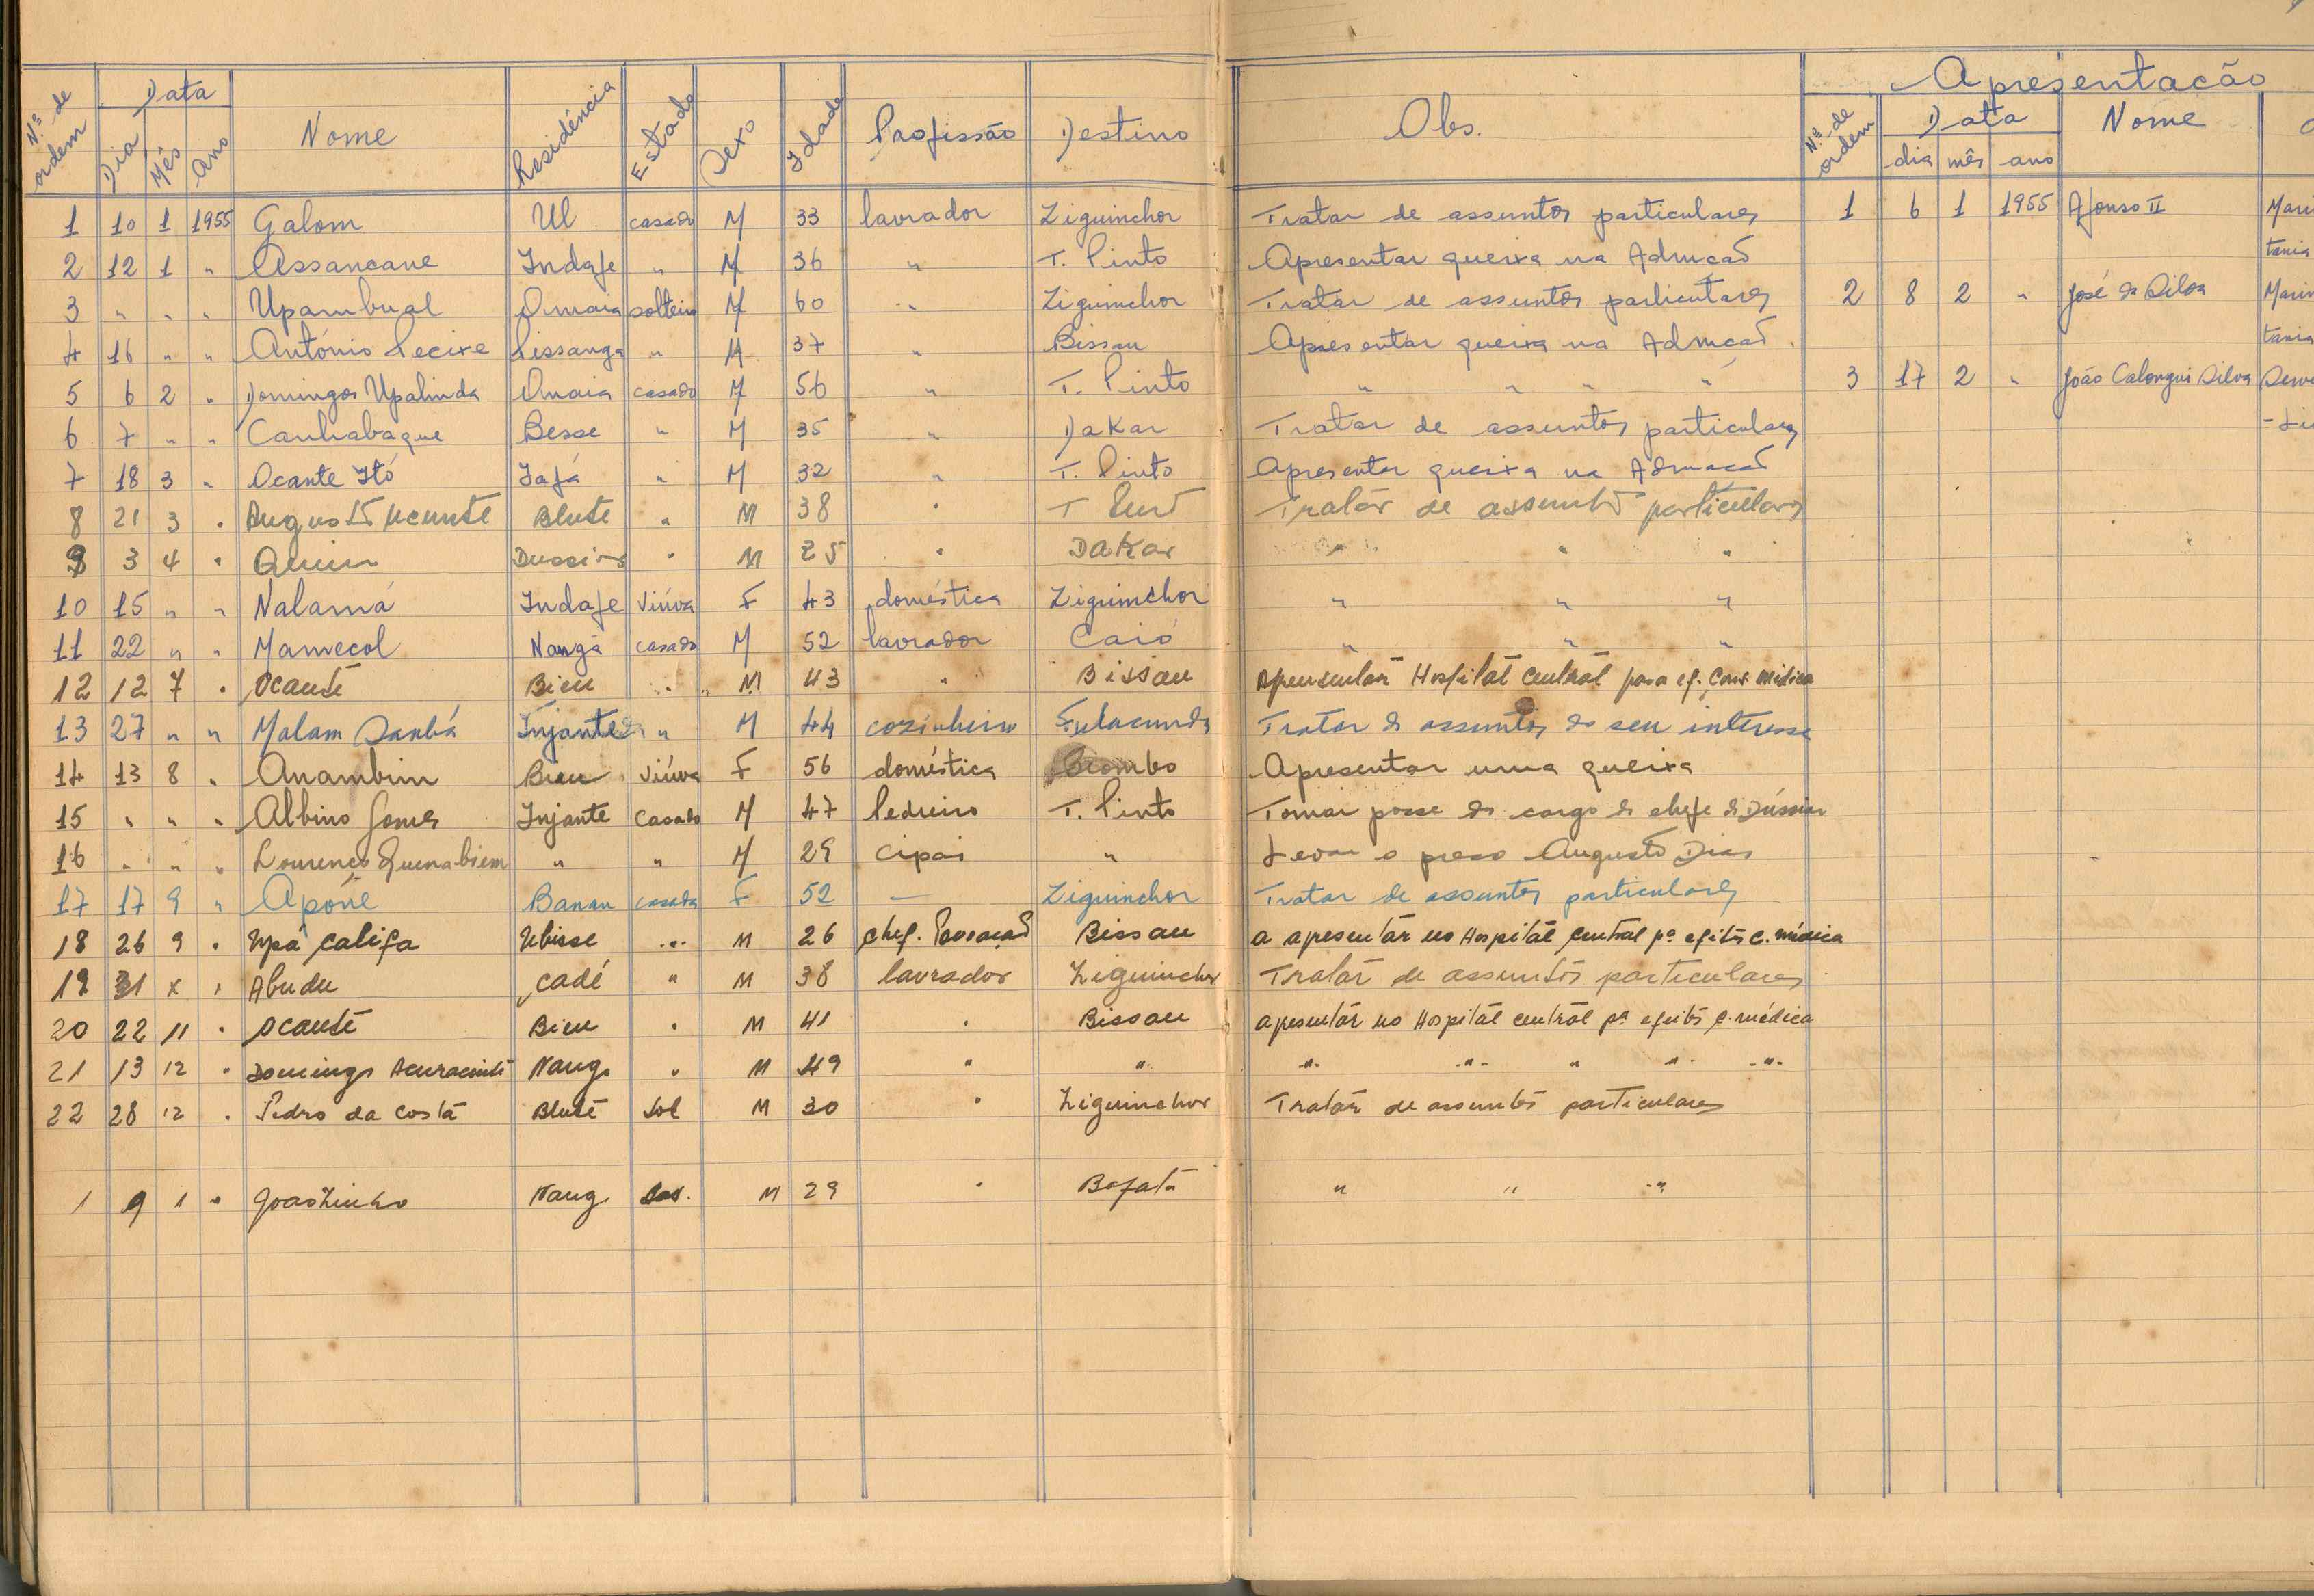 Nº de ordem Data Nome Residência Estado Sexo Idade Profissão Destino Obs. Apresentação
Dia Mês Ano Nº de ordem Data Nome
dia mês ano
1 10 1 1955 Galom Ul casado M 33 lavrador Ziguinchor Tratar de assuntos particulares 1 6 1 1955 Afonso II Mari
2 12 1 " Assancane Indafe " M 36 " T. Pinto Apresentar queixa na Admcaō tania
3 " " " Upambual Omaia solteiro M 60 " Ziguinchor Tratar de assuntos particulares 2 8 2 " José da Silva Marin
4 16 " " António Pecixe Pissanga " M 37 " Bissau Apresentar queixa na Admcaō. tania
5 6 2 " Domingos Upalinda Omaia casado M 56 " T. Pinto " " " " 3 17 2 " João Calongui Silva
6 7 " " Canhabaque Besse " M 35 " Dakar Tratar de assuntos particulares
7 18 3 " Ocante Itó Jafá " M 32 " T. Pinto Apresentar queixa na Admcaō
8 21 3 " Augusto Ucunte Blute " M 38 " T Tratar de assuntos particulares
9 3 4 " " M 25 " Dakar " " "
10 15 " " Nalamá Indafe Viúva F 43 doméstica Ziguinchor " " "
11 22 " " Mamecol Nanga casado M 52 lavrador Caió " " "
12 12 7 " Ocante Bieu " M 43 " Bissau Hospital Central para ef. Cons. Médica
13 27 " " Malam Sanbá Injante " M 44 cozinheiro Fulacunda Tratar de assuntos do seu interesse
14 13 8 " Anambim Bieu Viúva F 56 doméstica Biombo Apresentar uma queixa
15 " " " Albino Gomes Injante Casado M 47 Pedreiro T. Pinto Tomar posse do cargo de chefe de Dússim
16 " " " Lourenço Quenabiem " " M 29 Cipai " Levar o preso Augusto Dias
17 17 9 " Apóne Banau casada F 52 — Ziguinchor Tratar de assuntos particulares
18 26 9 " Upá Califa Ubisse " M 26 chef. Povoaçaō Bissau a apresentar no Hospital Central pª efeitos c. médica
19 31 x " Abudu Cadé " M 38 lavrador Ziguinchor Tratar de assuntos particulares
20 22 11 " Ocante Bieu " M 41 " Bissau apresentar no Hospital central pª efeitos c. médica
21 13 12 " Domingos Nanga " M 49 " " " " " " "
22 28 12 " Pedro da Costa Blute Sol M 30 " Ziguinchor Tratar de assuntos particulares
1 9 1 " Joaozinho Nang M 29 " Bafatá " " "